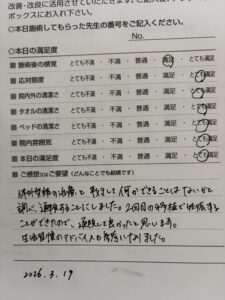 改善・改良に活用させていただきます。ご記入後
ボックスにお入れ下さい。
◎本日施術してもらった先生の番号をご記入ください。
No.
◎本日の満足度
■ 施術後の感覚 とても不満 ・ 不満 ・ 普通 ・ 満足 ・ とても満足
■ 応対態度 とても不満 ・ 不満 ・ 普通 ・ 満足 ・ とても満足
■ 院内外の清潔さ とても不満 ・ 不満 ・ 普通 ・ 満足 ・ とても満足
■ タオルの清潔さ とても不満 ・ 不満 ・ 普通 ・ 満足 ・ とても満足
■ ベッドの清潔さ とても不満 ・ 不満 ・ 普通 ・ 満足 ・ とても満足
■ 院内雰囲気 とても不満 ・ 不満 ・ 普通 ・ 満足 ・ とても満足
■ 本日の満足度 とても不満 ・ 不満 ・ 普通 ・ 満足 ・ とても満足
■ ご感想又はご要望 (どんなことでも結構です)
治療と 何かできることはないかと
調べ、通院することにしました。2回目の移植で妊娠する
ことができたので、通院して良かったと思います。
生活習慣のアドバイスも参考になりました。
2026.3.19